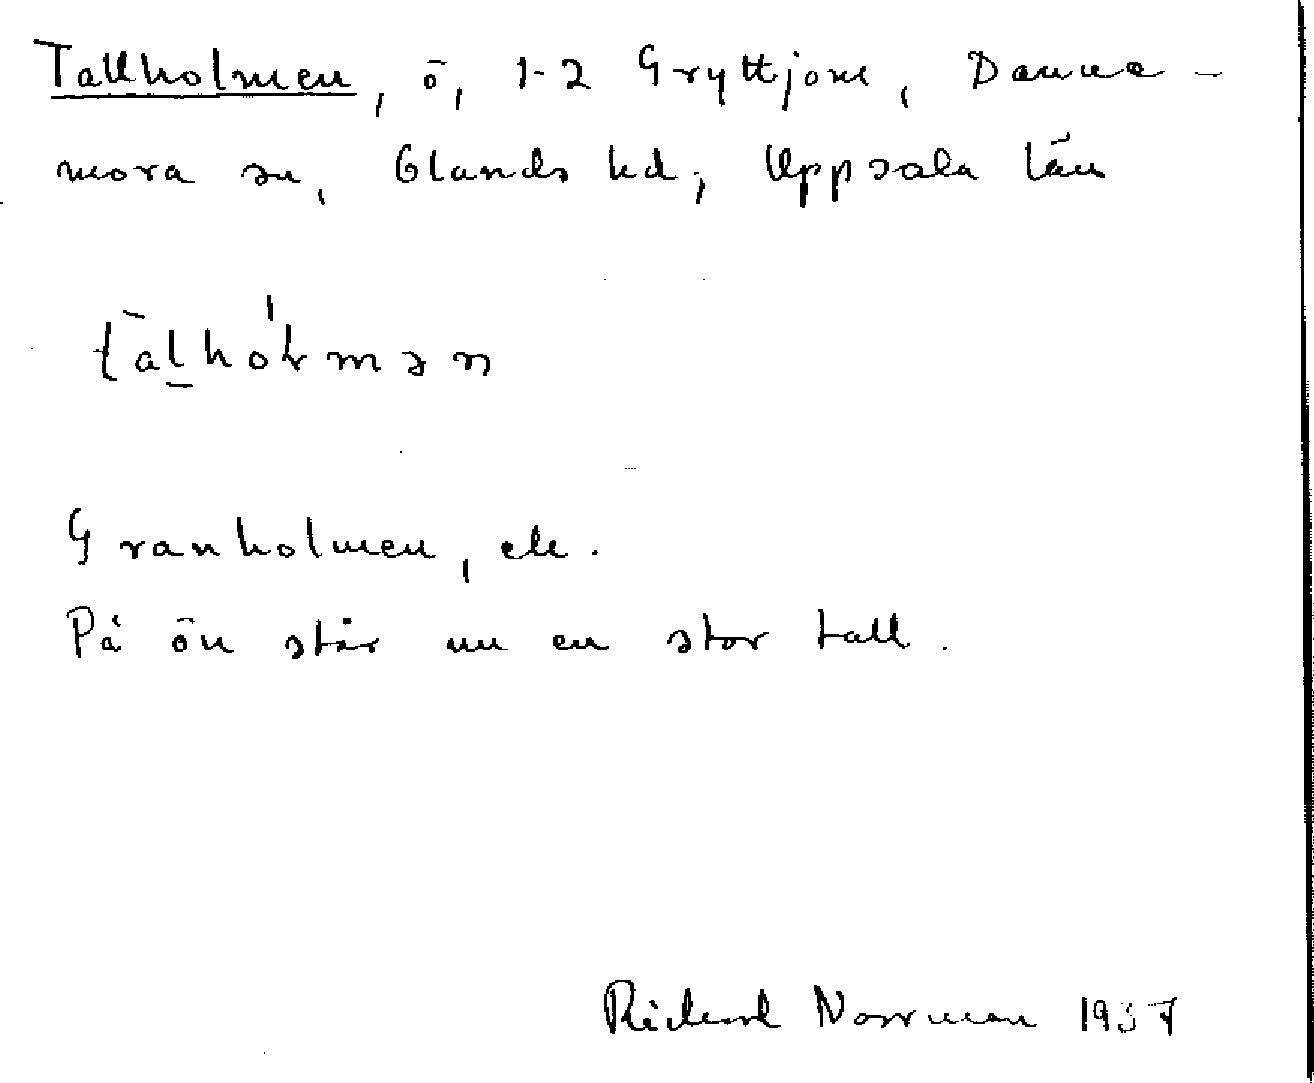 Tallholmen, ö, 1-2 Gryttjom, Danne-
mora sn, Olands hd, Uppsala län
tàlhólmən
Granholmen, etc.
På ön står nu en stor tall.
Rickard Norrman 1937